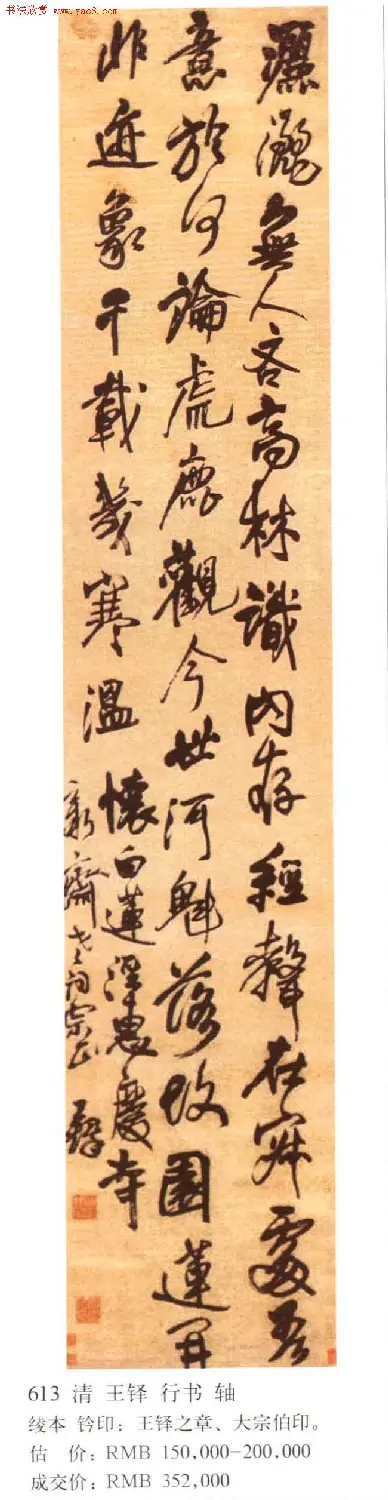 书法欣赏 www.yac8.com
無人吝高林識內存經聲在處吾
意於何論虎鹿觀今世河魁落故園蓮開
非迹象千載幾寒溫 懷白蓮淨思慶寺
新齋老詞宗正 鐸
613 清 王铎 行书 轴
绫本 钤印：王铎之章、大宗伯印。
估 价：RMB 150,000-200,000
成交价：RMB 352,000